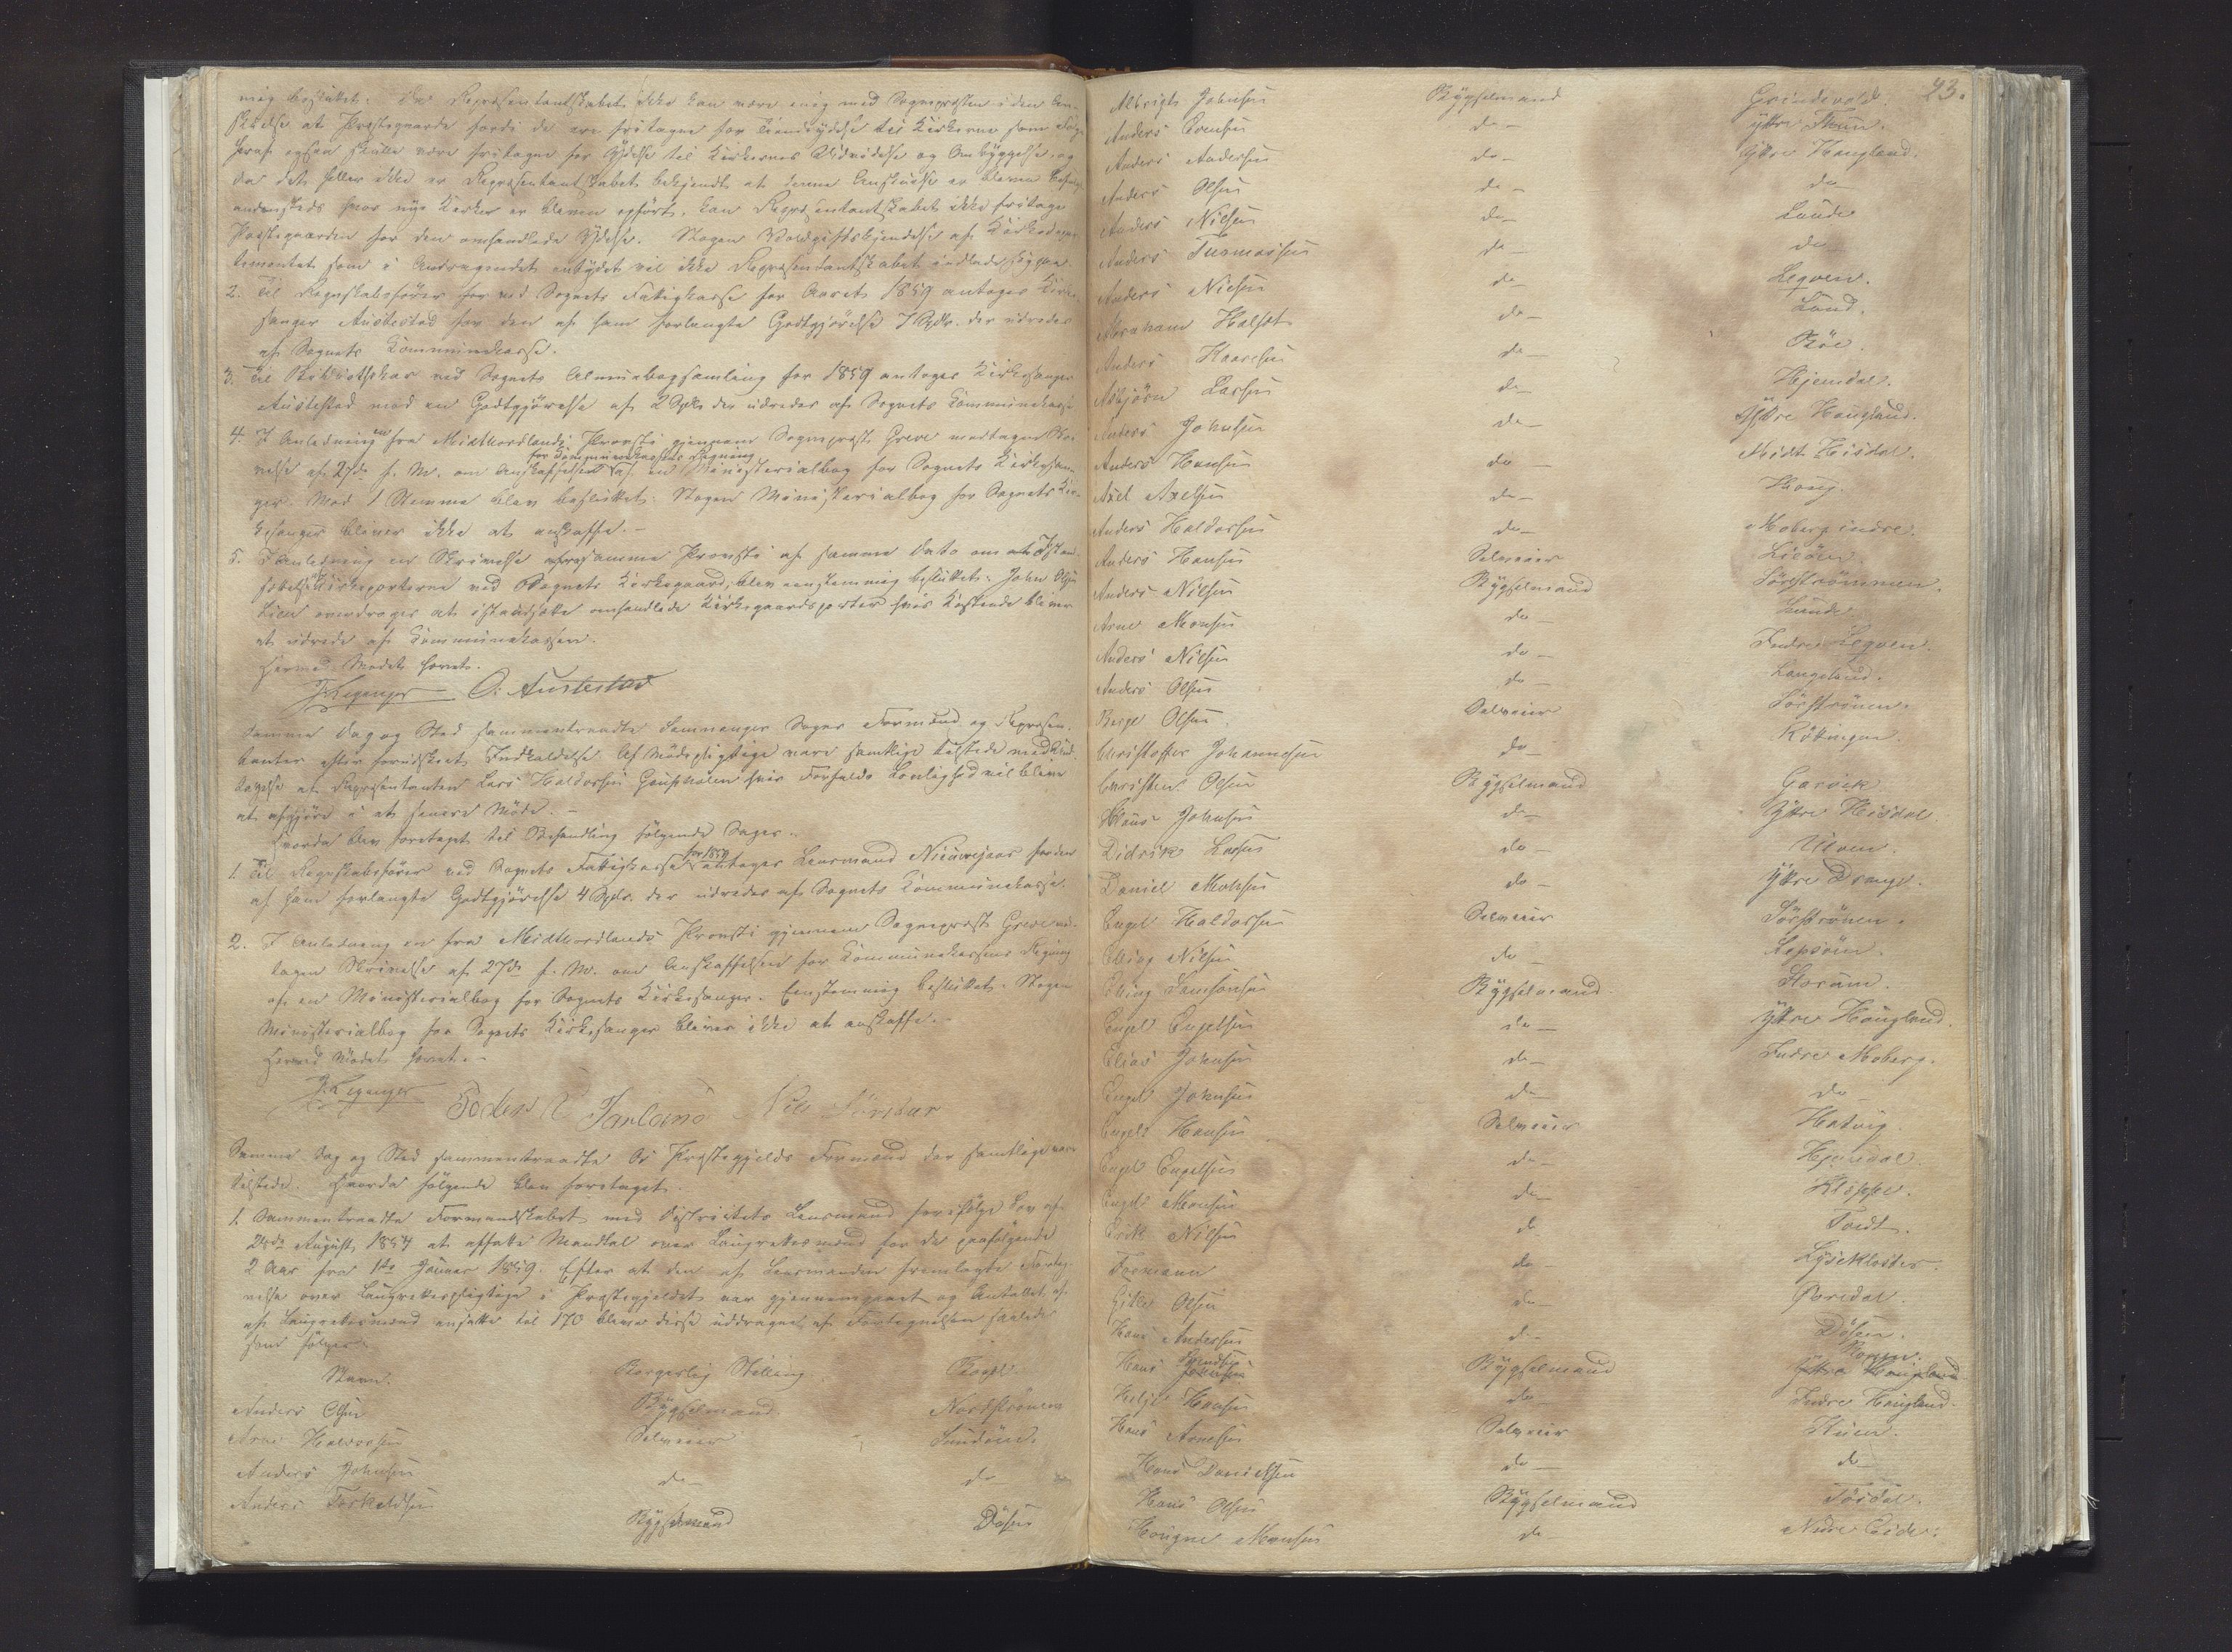 mig besluttet: Da Repræsentantskabet ikke kan være enig med Sognepræsten i den An-
skuelse at Præstegaarde fordi de ere fritagne for Tiendeydelse til Kirkerne som Følge
heraf ogsaa skulle være fritagne for Ydelse til Kirkernes Udvidelse og Ombyggelse, og
da det heller ikke er Repræsentantskabet bekjendt at denne Anskuelse er bleven
andensteds hvor nye Kirker er bleven opført, kan Repræsentantskabet ikke fritage
Præstegaarden for den omhandlede Ydelse. Nogen Voldgiftskjendelse af Kirkedepar-
tementet som i Andragendet antydet vil ikke Repræsentantskabet indlade sig paa.
2. Til Regnskabsfører for ved Sognets Fattigkasse for Aaret 1859 antages Kirke-
sanger Austestad for den af ham forlangte Godtgjørelse 7 Spdlr. der udredes
af Sognets Kommunekasse.
3. Til Bibliothekar ved Sognets Almuebogsamling for 1859 antages Kirkesanger
Austestad mod en Godtgjørelse af 2 Spdlr der udredes af Sognets Kommunekasse
4. I Anledning en fra Midthordlands Provsti gjennem Sognepræst Greve modtagen Skri-
for Kommunekassens Regning
velse af 27de f. M. om Anskaffelsen af en Ministerialbog for Sognets Kirkesan-
ger. Mod 1 Stemme blev besluttet: Nogen Ministerialbog for Sognets Kir-
kesanger bliver ikke at anskaffe. -
5. I Anledning en Skrivelse fra samme Provsti af samme Dato om istand-
sættelse Kirkeporterne ved Sognets Kirkegaard, blev eenstemmig besluttet: John Olsen
Lien overdrages at istandsætte omhandlede Kirkegaardsporter hvis Kostende bliver
at udrede af Kommunekassen.
Hermed Mødet hævet.
J. Kegenger O. Austestad
Samme Dag og Sted sammentraadte Samnanger Sogns Formænd og Repræsen-
tanter efter forudskeet Indkaldelse. Af Mødepligtige vare samtlige tilstede med Und-
tagelse af Repræsentanten Lars Haldorsen hvis Forfalds Lovlighed vil blive
at afgjøre i et senere Møde. -
Hvorda blev foretaget til Behandling følgende Sager:
for 1859
1. Til Regnskabsfører ved Sognets Fattigkasse antages Lensmand for den
af ham forlangte Godtgjørelse 4 Spdlr. der udredes af Sognets Kommunekasse.
2. I Anledning en fra Midthordlands Provsti gjennem Sognepræst Greve mod-
tagen Skrivelse af 27de f. M. om Anskaffelsen for Kommunekassens Regning
af en Ministerialbog for Sognets Kirkesanger. Eenstemmig besluttet: Nogen
Ministerialbog for Sognets Kirkesanger bliver ikke at anskaffe. -
Hermed Mødet hævet. -
J. Kegenger
Samme Dag og Sted sammentraadte Os Præstegjelds Formænd der samtlige vare
tilstede. Hvorda følgende blev foretaget.
1. Sammentraadte Formandskabet med Distriktets Lensmand for ifølge Lov af
August 1854 at affatte Mandtal over Laugrettesmænd for de paafølgende
2 Aar fra 1ste Januar 1859. Efter at den af Lensmanden fremlagte Forteg-
nelse over Laugrettespligtige i Præstegjeldet var gjennemgaaet og Antallet af
af Laugrettesmænd ansatte til 170 bleve disse uddragne af Fortegnelsen saaledes
som følger:
Navn. Borgerlig Stilling. Bopæl.
Anders Olsen Bygselmand Nordstrønen
Arne Haldorsen Selveier Sundøen.
Anders Johnsen do do
Anders Torkeldsen Bygselmand Døsen
23.
Albrigt Johnsen Bygselmand Grindevold.
Anders do -
Anders Andersen do - Ytre Haugland.
Anders Olsen do - do
Anders Nilsen do - Lunde
Anders Tuomassen do - do
Anders Nilsen do - Legven.
Abraham Halset do - Sand.
Anders Haavelsen do - Bøe.
Asbjørn Larsen do - Hjemdal.
Anders Johnsen do - Ytre Haugland.
Anders Hansen do - Midt Hisdal.
Axel Axelsen do - Haug.
Anders Haldorsen do - Moberg indre.
Anders Hansen Selveier Lisøen.
Anders Nilsen Bygselmand Sørstrømmen.
Arne Monsen do - Lunde
Anders Nilsen do - Indre Legven.
Anders Olsen do - Langeland.
Berge Olsen Selveier Sørstrønen.
Christoffer Johannesen do - Røtingen.
Christen Olsen Bygselmand Gaasvik.
Claus Johnsen do - Ytre Hisdal.
Didrik Larsen do - Ulven.
Daniel Monsen do - Ytre Drange.
Engel Haldorsen Selveier Sørstrønen.
Elling Nilsen do - Lepsøen.
Elling Samsonsen Bygselmand Storum.
Engel Engelsen do - Ytre Haugland.
Elias Johnsen do - Indre Moberg.
Engel Johnsen do - do
Engel Hansen Selveier Hatvig.
Engel Engelsen do - Hjemdal.
Engel Monsen do - Kleppe.
Erik Nilsen do Tveit.
Formann do - Lysekloster.
Gitle Olsen do - Boredal.
Hans Andersen do - Døsen.
Hans Bygselmand
Helge Hansen do - Indre Haugland.
Hans Arnesen Selveier Kuven.
Hans Danielsen do - do
Hans Olsen Bygselmand Tøsdal.
Haagne Monsen do - Nedre Eide.